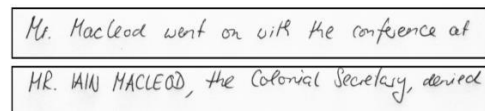 Mr. Macleod went on with the conference at
MR. IAIN MACLEOD, the Colonial Secretary, denied